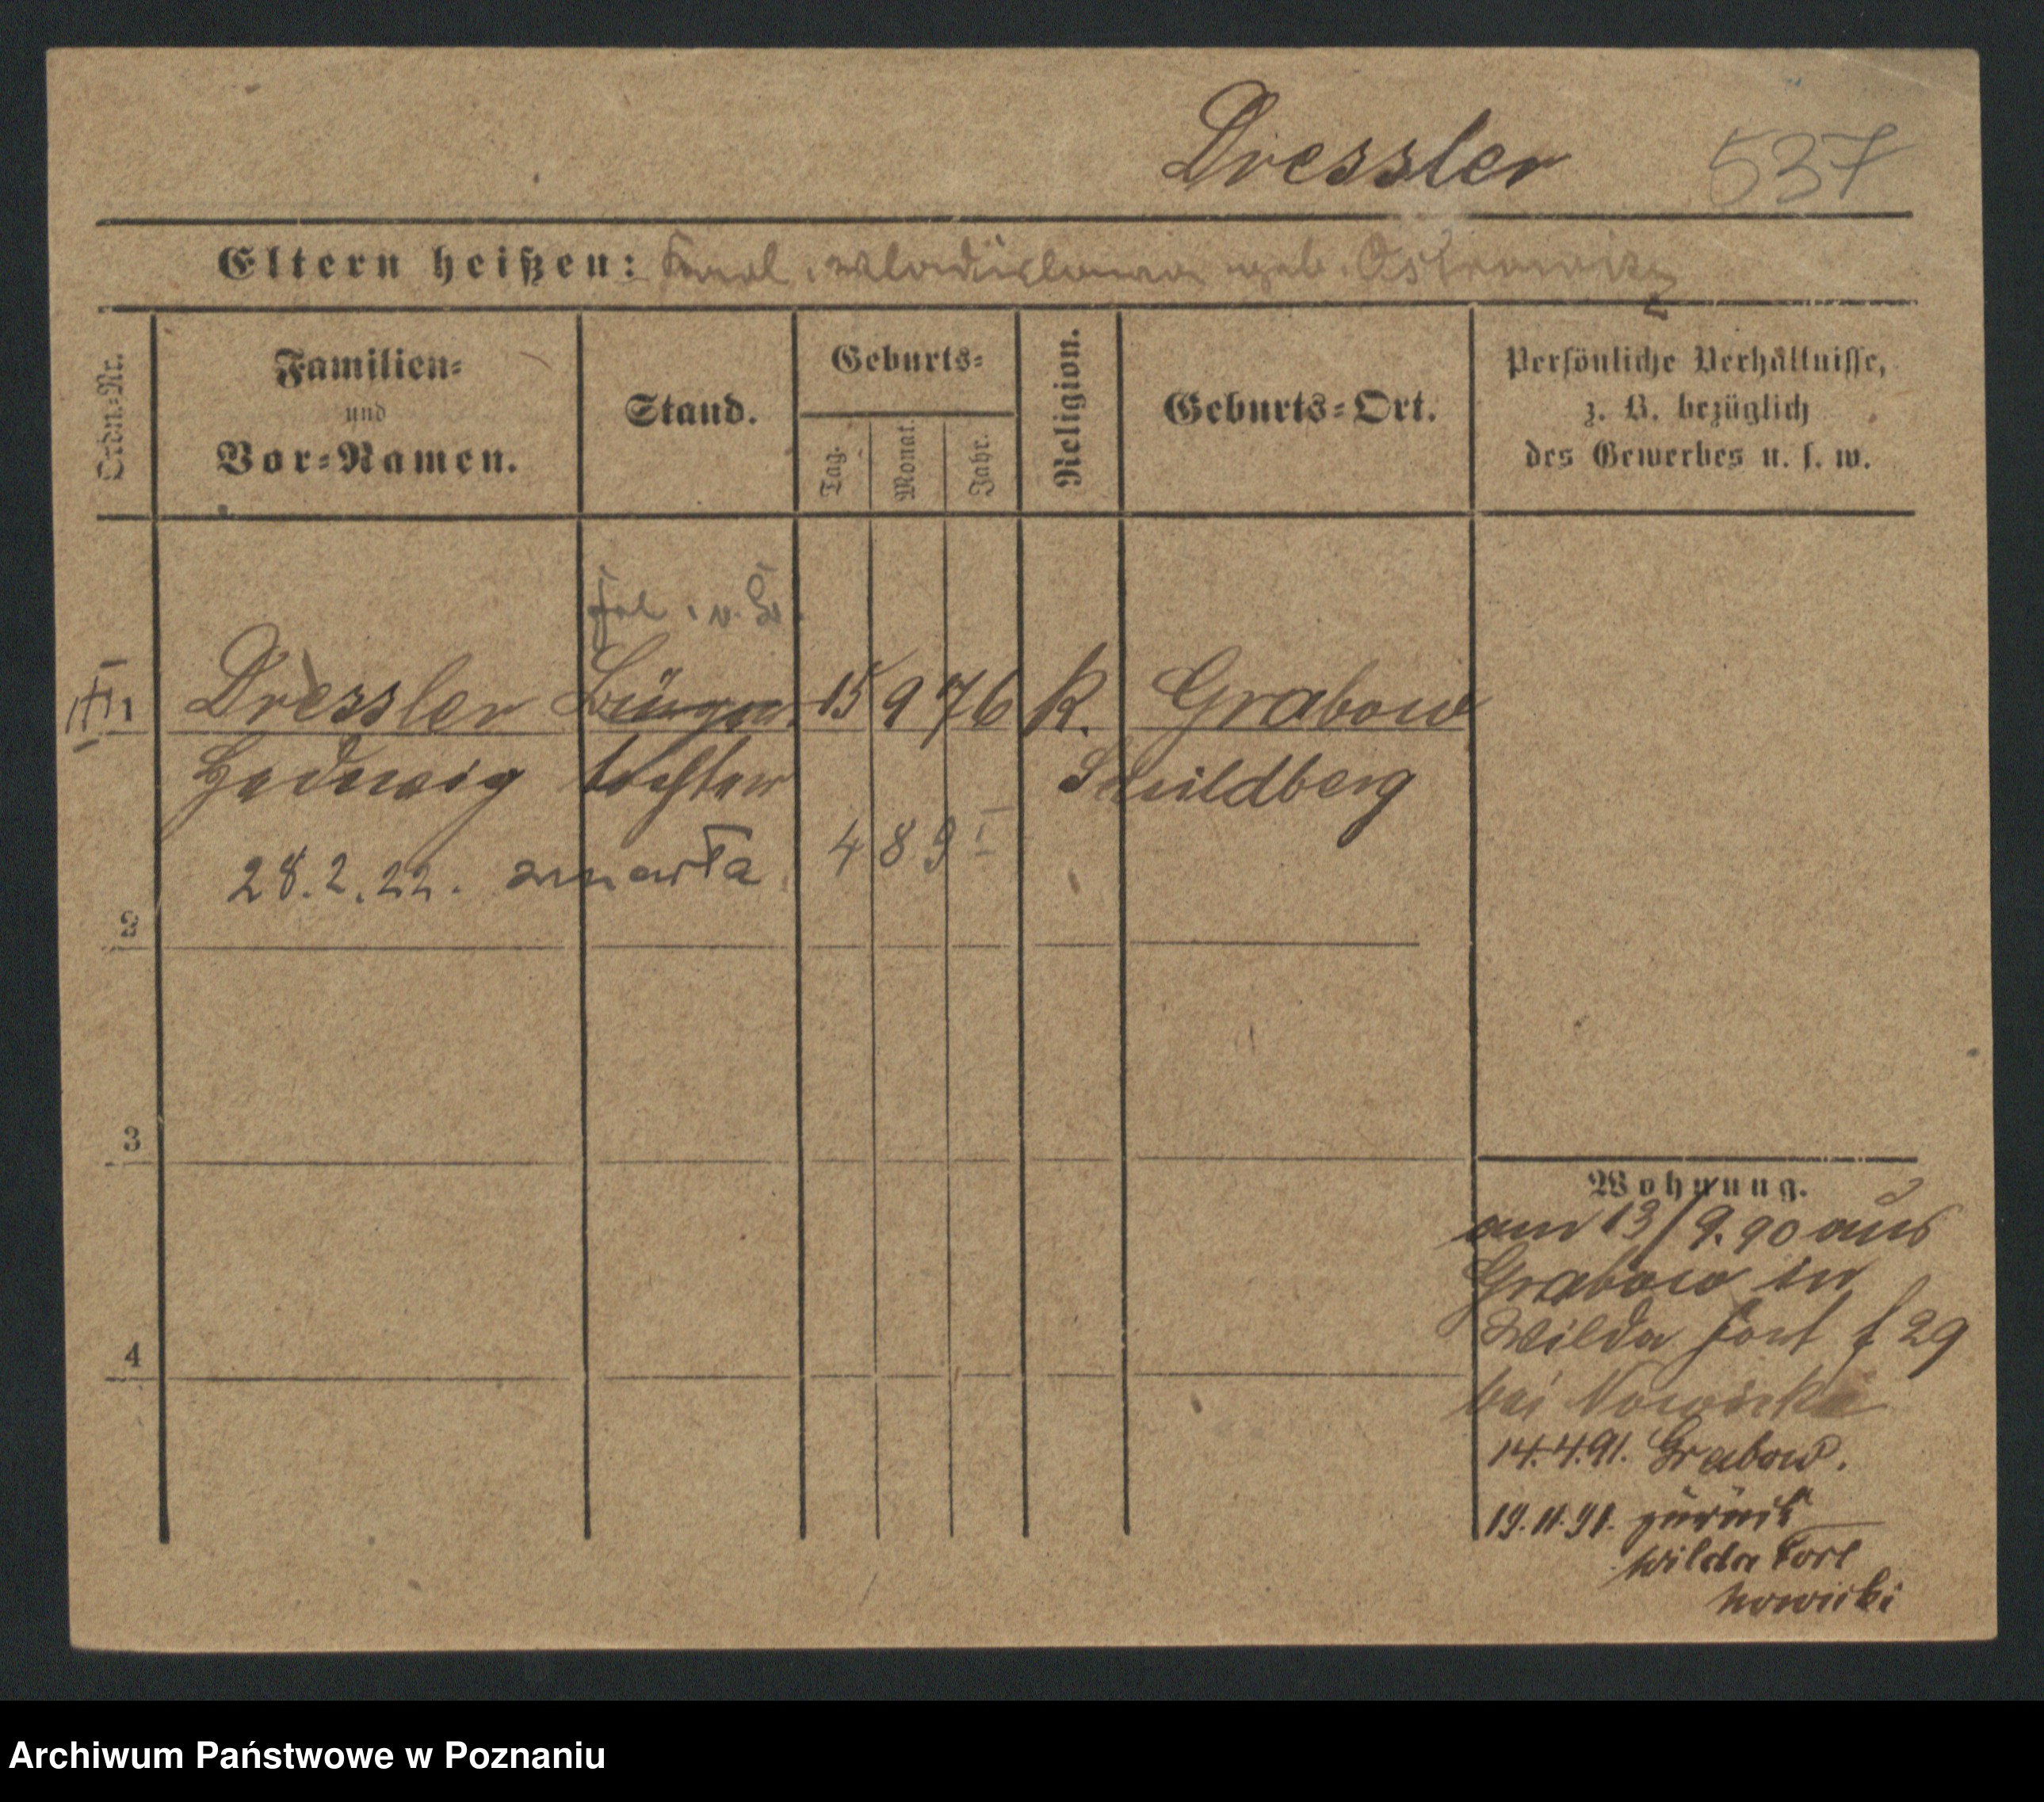 Dressler 537
Eltern heißen: Karl, Wladislawa geb. Ostrowicz
Ordn.-Nr.
Familien-
und
Vor-Namen.
Stand.
Geburts-
Tag.
Monat.
Jahr.
Religion.
Geburts-Ort.
Persönliche Verhältnisse,
z. B. bezüglich
des Gewerbes u. s. w.
1 Dressler Bürger- 15 9 76 K. Grabow
Hedwig tochter Schildberg
28.2.22. zmarła 4 8 9
2
3
4
Wohnung.
am 13/9.90 aus
Grabow in
Wilda Fort f 29
bei Nowicki
14.4.91. Grabow.
19.11.91. zurück
Wilda Fort
Nowicki
Archiwum Państwowe w Poznaniu